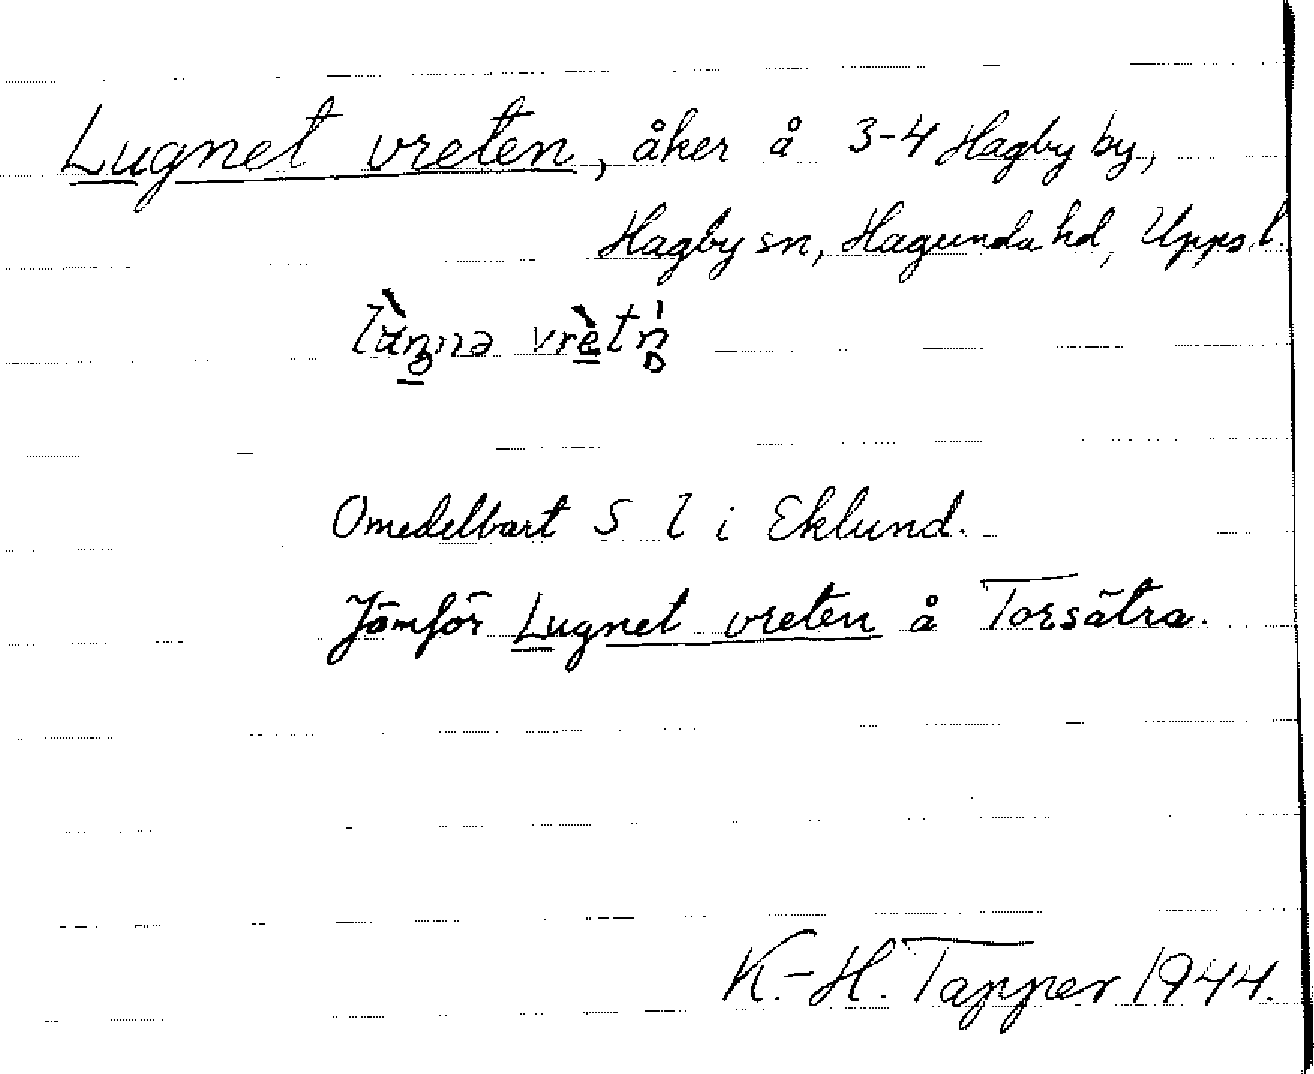 Lugnet vreten, åker å 3-4 Hagby by,
Hagby sn, Hagunda hd, Uppsl.
vrètn̥
Omedelbart S l i Eklund.
Jämför Lugnet vreten å Torsätra.
K.-H. Tapper 1944.